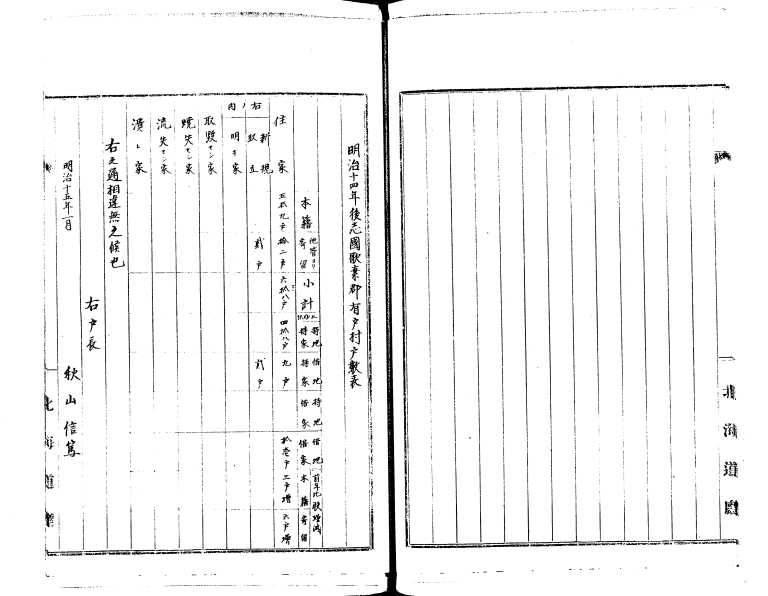 明治十四年後志國歌棄郡有戸村戸數表
本籍
他管ヨリ寄留
小計
持地持家
借地持家
持地借家
借地借家
前年比較増減
本籍
寄留
住家
五拾九戸
拾二戸
六拾八戸
四拾八戸
九戸
拾壱戸
二戸増
六戸増
右ノ内
新規
取立
貳戸
貳戸
明キ家
取毀セシ家
燒失セシ家
流失セシ家
潰レ家
右之通相違無之候也
明治十五年一月
右戸長
秋山信篤
北海道
北海道廳